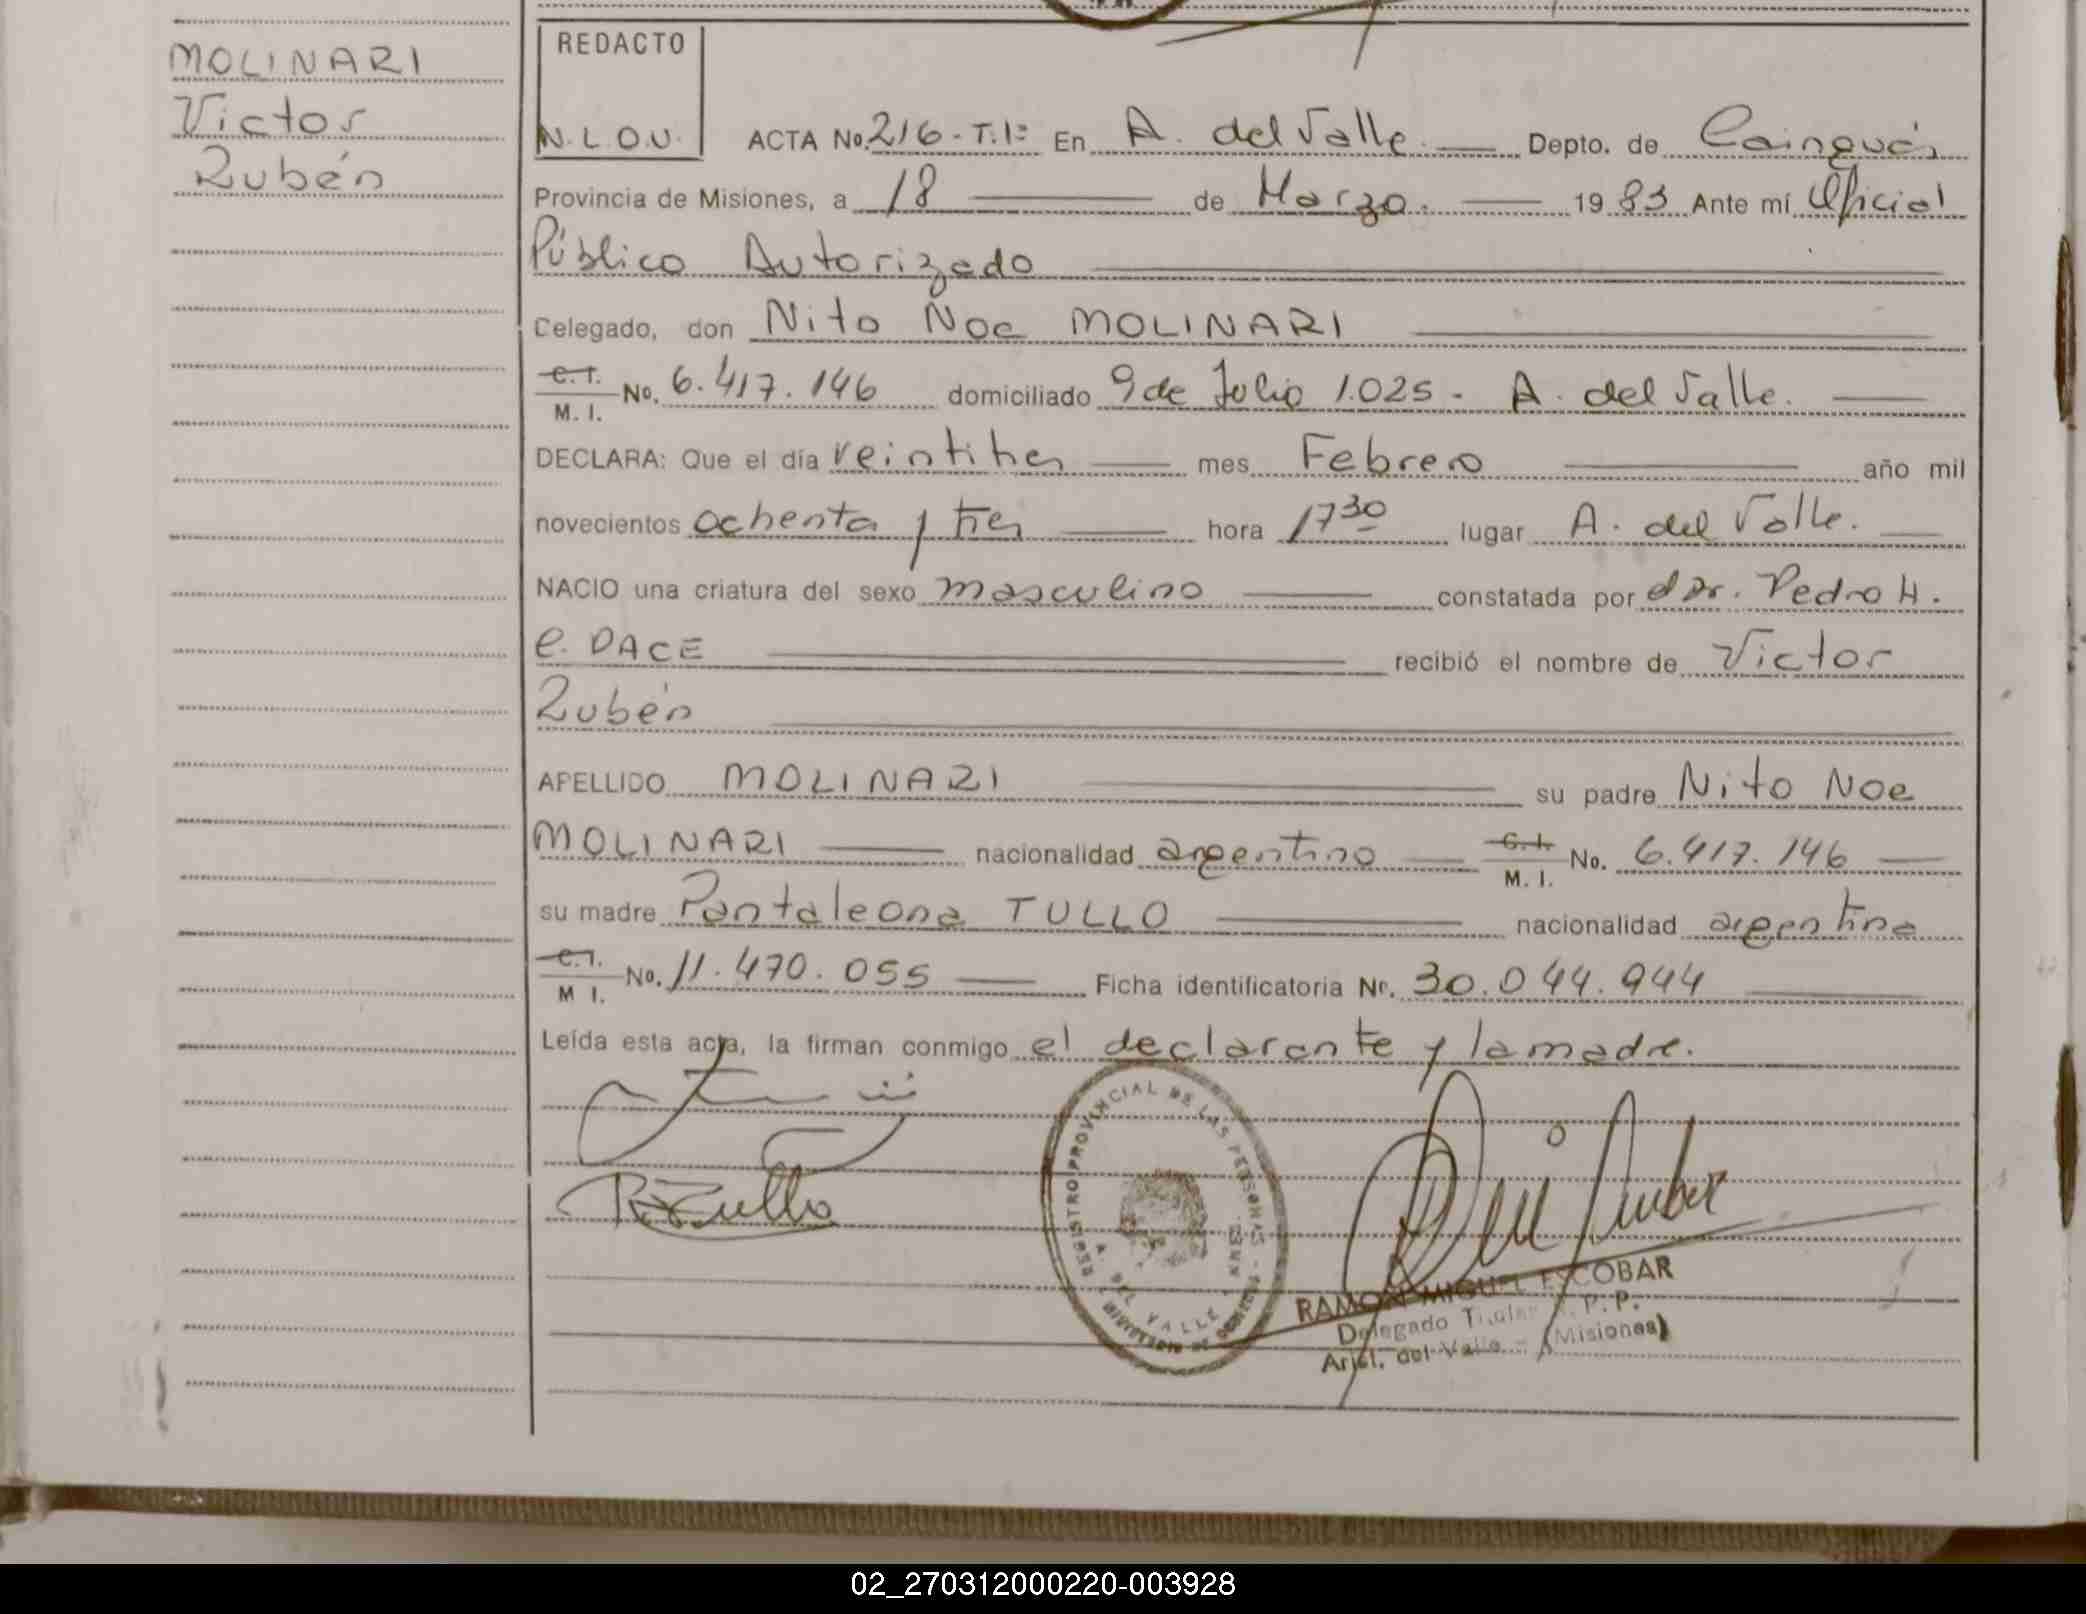 MOLINARI
Victor
Rubén
REDACTO
N.L.O.V.
ACTA No. 216 - T.1º En A. del Valle. Depto. de Cainguás
Provincia de Misiones, a 18 de Marzo. 1983 Ante mí Oficial
Público Autorizado
Celegado, don Nito Noe MOLINARI
C.I. M. I. No. 6.417.146 domiciliado 9 de Julio 1.025 - A. del Valle.
DECLARA: Que el día veintitres mes Febrero año mil
novecientos ochenta y tres hora 17 30 lugar A. del Valle.
NACIO una criatura del sexo masculino constatada por el Dr. Pedro H.
C. DACE recibió el nombre de Victor
Rubén
APELLIDO MOLINARI su padre Nito Noe
MOLINARI nacionalidad argentino C.I. M. I. No. 6.417.146
su madre Pantaleona TULLO nacionalidad argentina
C.I. M I. No. 11.470.055 Ficha identificatoria Nr. 30.044.944
Leída esta acta, la firman conmigo el declarante y la madre.
REGISTRO PROVINCIAL DE LAS PERSONAS
A. DEL VALLE
RAMON MIGUEL ESCOBAR
Delegado Titular R. P. P.
Arist. del Valle - (Misiones)
02_270312000220-003928